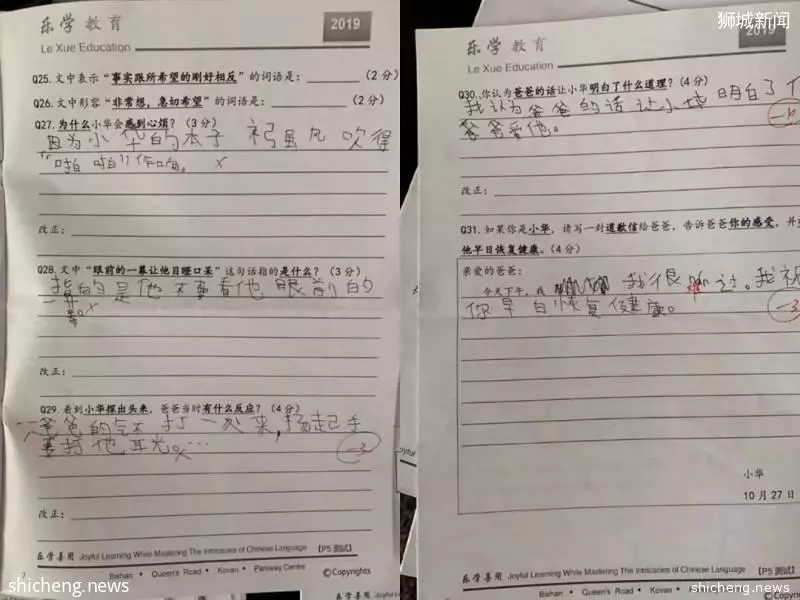 乐学教育
2019
Le Xue Education
Q25. 文中表示“事实跟所希望的刚好相反”的词语是：________（2分）
Q26. 文中形容“非常想，急切希望”的词语是：________（2分）
Q27. 为什么小华会感到心烦？（3分）
因为小华的本子 风 吹得
“啪 啪”作响。 x
改正：
Q28. 文中“眼前的一幕让他目瞪口呆”这句话指的是什么？（3分）
指的是他 看他 眼前的
x
改正：
Q29. 看到小华探出头来，爸爸当时有什么反应？（4分）
爸爸的气不打一处来，扬起手
要 他耳光。…
x
-3
改正：
乐学善用 Joyful Learning While Mastering The Intricacies of Chinese Language 【P5 测试】
Bishan • Queen's Road • Kovan • Parkway Centre
©Copyrights
shicheng.news
狮城新闻
乐学教育
2019
Le Xue Education
Q30. 你认为爸爸的话让小华明白了什么道理？（4分）
我认为爸爸的话让小华明白了
爸爸爱他。
改正：
Q31. 如果你是小华，请写一封道歉信给爸爸，告诉爸爸你的感受，并
他早日恢复健康。（4分）
亲爱的爸爸：
今天下午，我 我很 过。我祝
你早日恢复健康。
-3
小华
10 月 27 日
乐学善用 Joyful Learning While Mastering The Intricacies of Chinese Language 【P5 测试】
Bishan • Queen's Road • Kovan • Parkway Centre
©Copyrights
shicheng.news